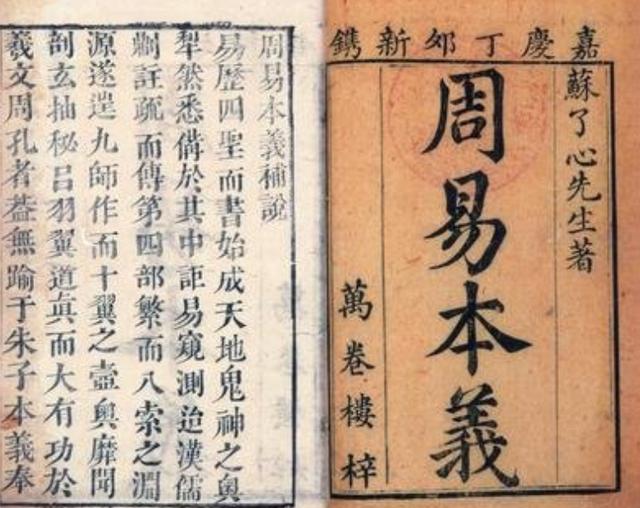 嘉慶丁卯新鐫
蘇了心先生著
周易本義
萬卷樓梓
周易本義補說
易歷四聖而書始成天地鬼神之奧
犂然悉備於其中詎易窺測迨漢儒
剏註疏而傳第四部繁而八索之淵
源遂遑九師作而十翼之壼奧靡聞
剖玄抽秘呂羽翼道眞而大有功於
羲文周孔者葢無踰于朱子本義奉